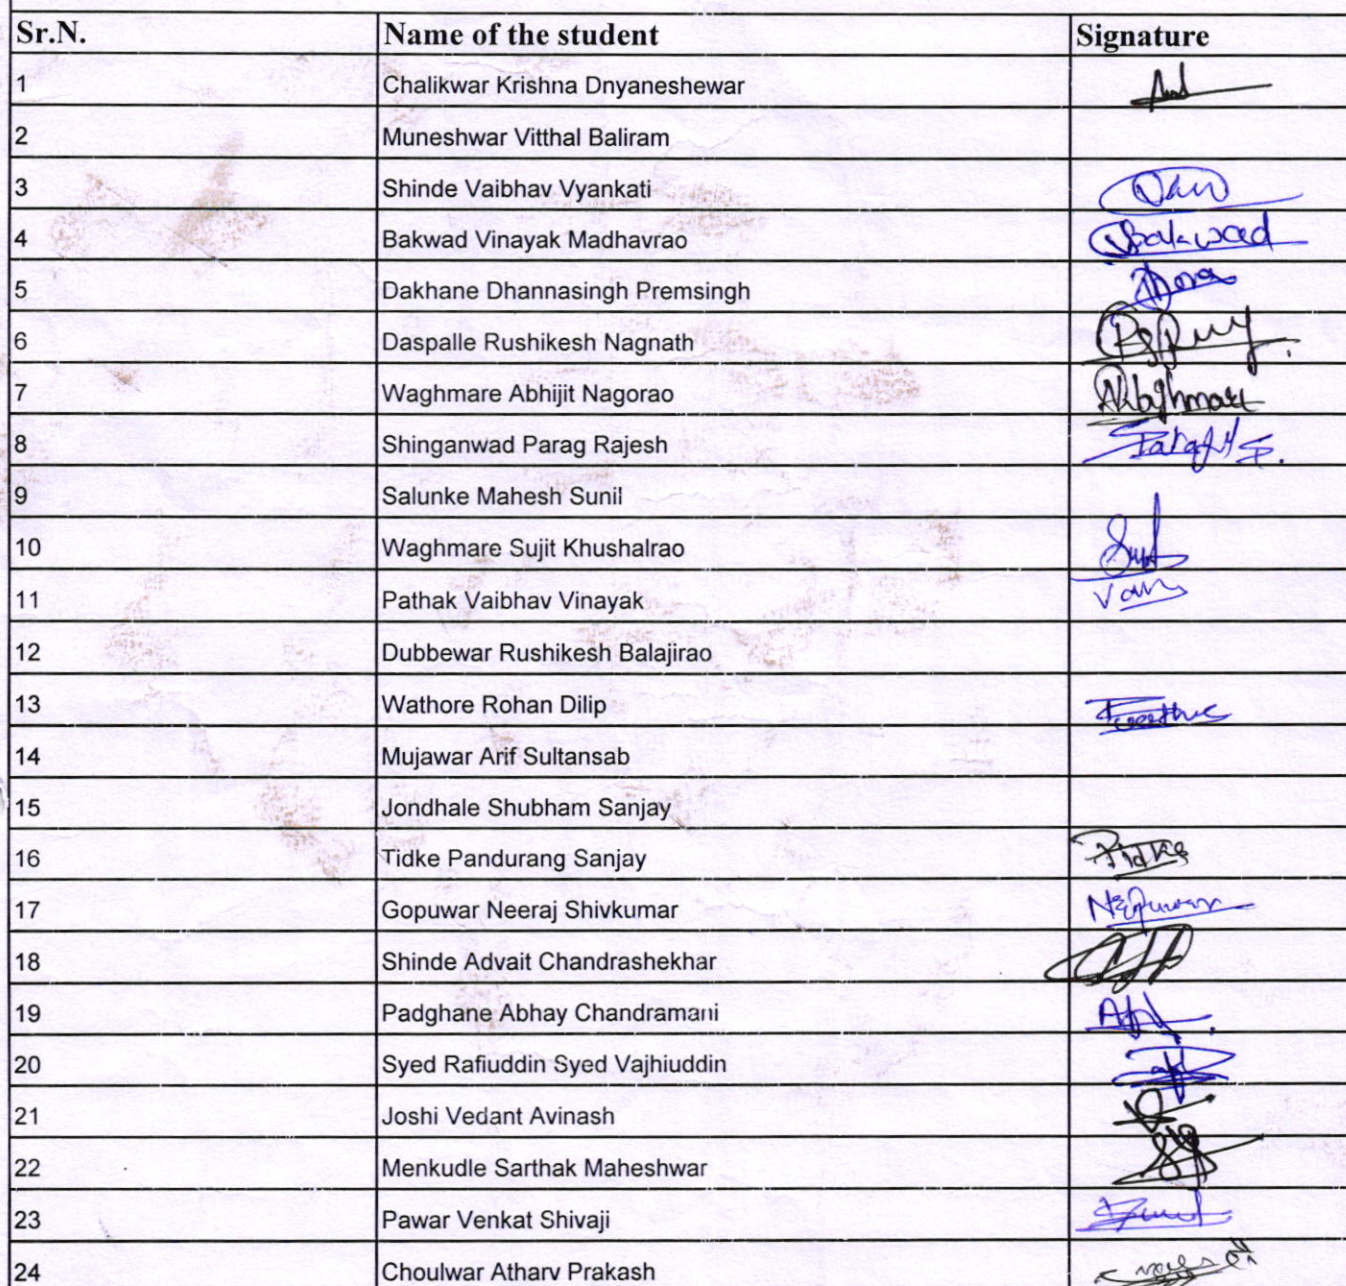 Sr.N. Name of the student Signature
1 Chalikwar Krishna Dnyaneshewar
2 Muneshwar Vitthal Baliram
3 Shinde Vaibhav Vyankati
4 Bakwad Vinayak Madhavrao Bakwad
5 Dakhane Dhannasingh Premsingh
6 Daspalle Rushikesh Nagnath
7 Waghmare Abhijit Nagorao
8 Shinganwad Parag Rajesh
9 Salunke Mahesh Sunil
10 Waghmare Sujit Khushalrao
11 Pathak Vaibhav Vinayak
12 Dubbewar Rushikesh Balajirao
13 Wathore Rohan Dilip
14 Mujawar Arif Sultansab
15 Jondhale Shubham Sanjay
16 Tidke Pandurang Sanjay
17 Gopuwar Neeraj Shivkumar
18 Shinde Advait Chandrashekhar
19 Padghane Abhay Chandramani
20 Syed Rafiuddin Syed Vajhiuddin
21 Joshi Vedant Avinash
22 Menkudle Sarthak Maheshwar
23 Pawar Venkat Shivaji
24 Choulwar Atharv Prakash